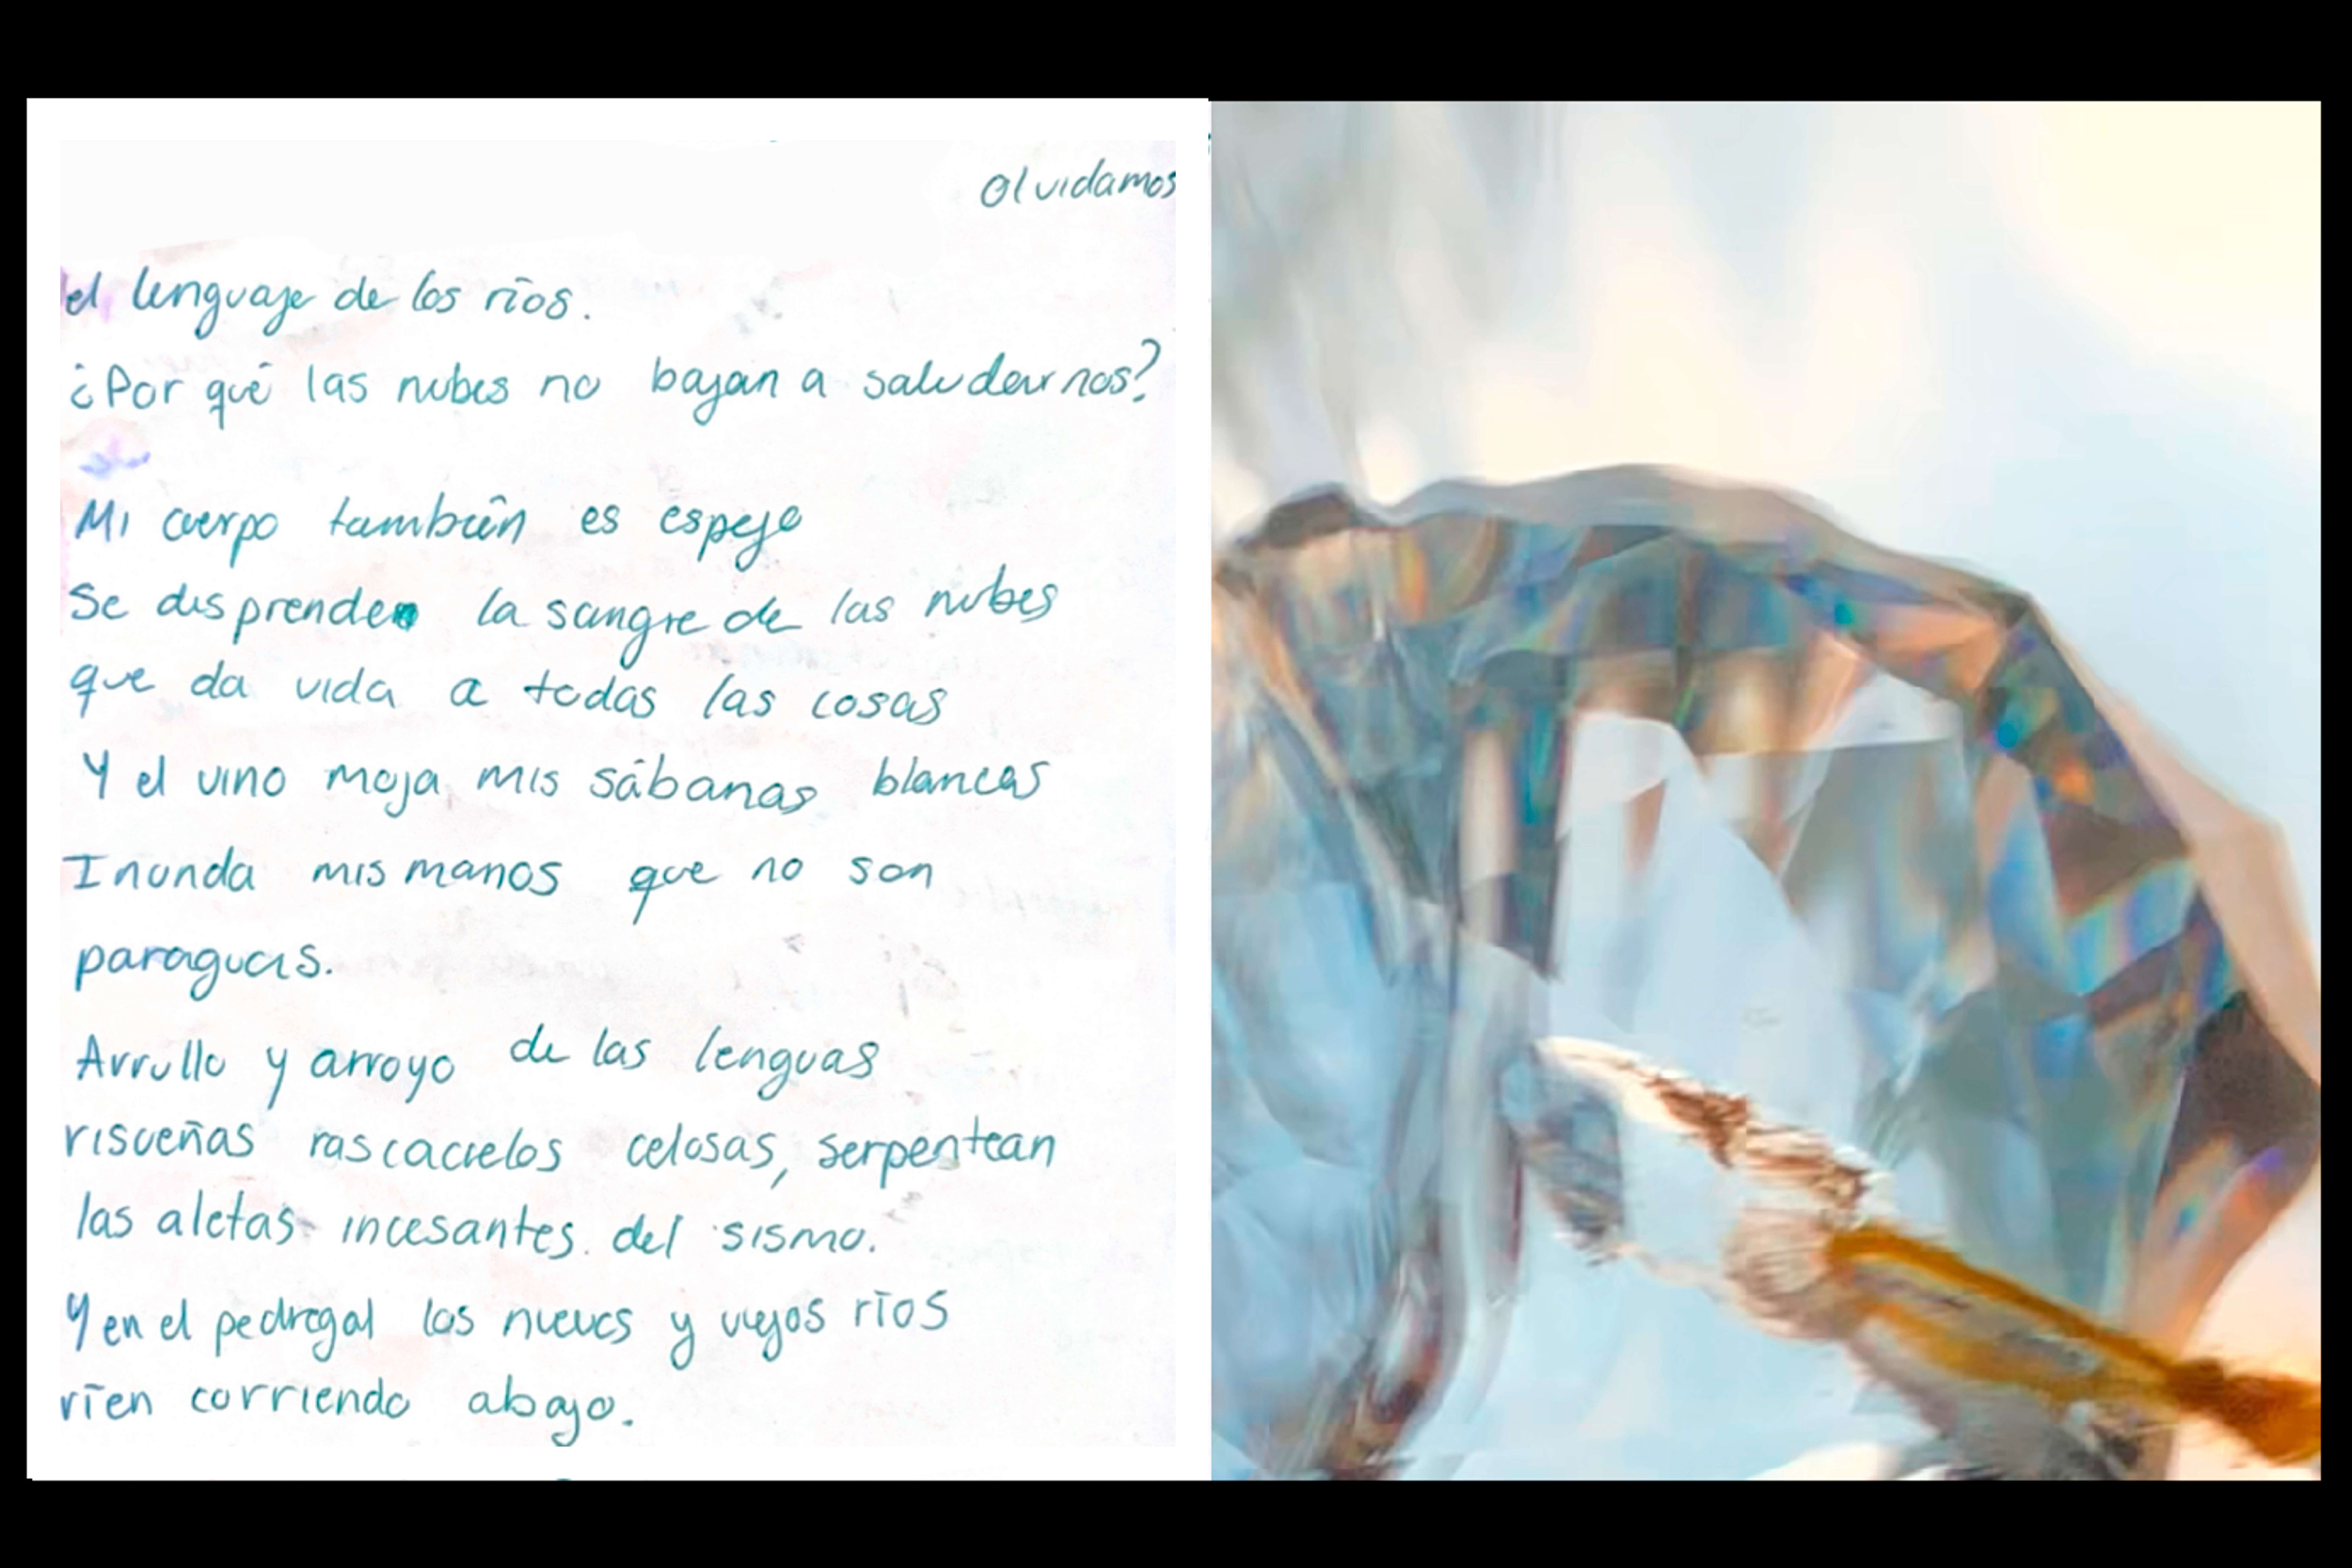 olvidamos
el lenguaje de los ríos.
¿Por qué las nubes no bajan a saludarnos?
Mi cuerpo también es espejo
Se disprende la sangre de las nubes
que da vida a todas las cosas
Y el vino moja mis sábanas blancas
Inunda mis manos que no son
paraguas.
Arrullo y arroyo de las lenguas
risueñas rascacielos celosas, serpentean
las aletas incesantes del sismo.
Y en el pedregal los nuevos y viejos ríos
ríen corriendo abajo.